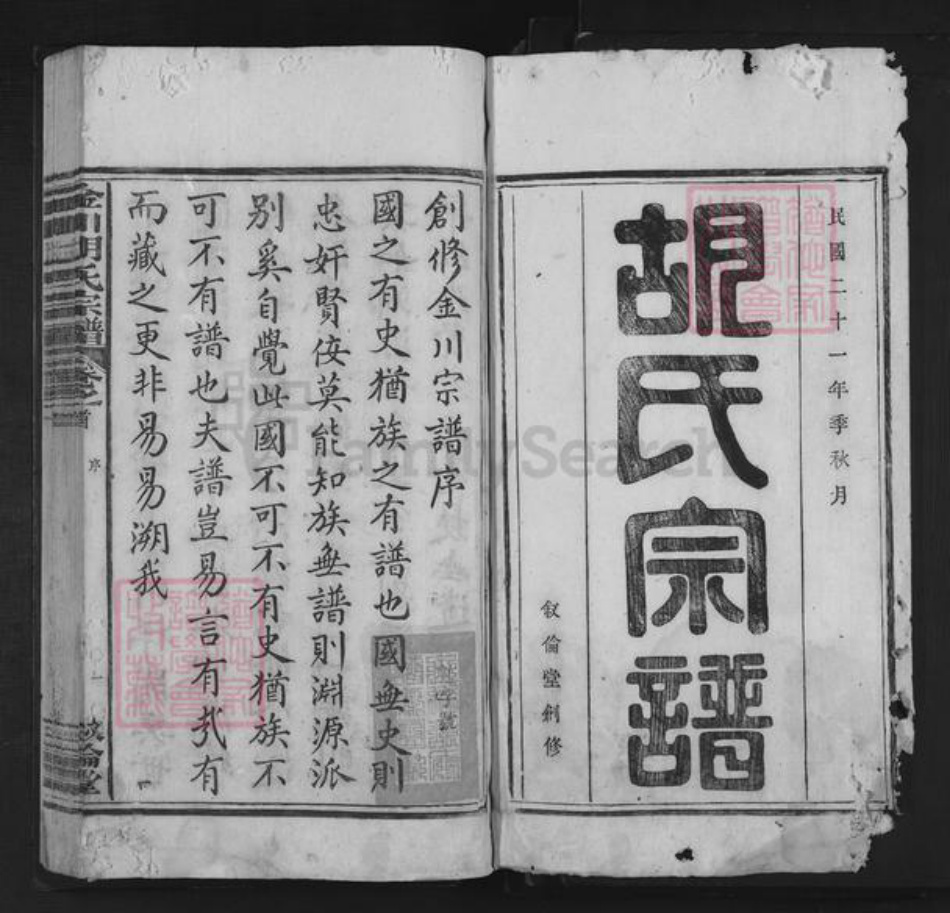 民國二十一年季秋月
胡氏宗譜
敘倫堂創修
創修金川宗譜序
國之有史猶族之有譜也國無史則
忠奸賢佞莫能知族無譜則淵源派
別奚自覺此國不可不有史猶族不
可不有譜也夫譜豈易言有哉有
而藏之更非易易溯我
金川胡氏宗譜 卷之首 序 一 敘倫堂
FamilySearch